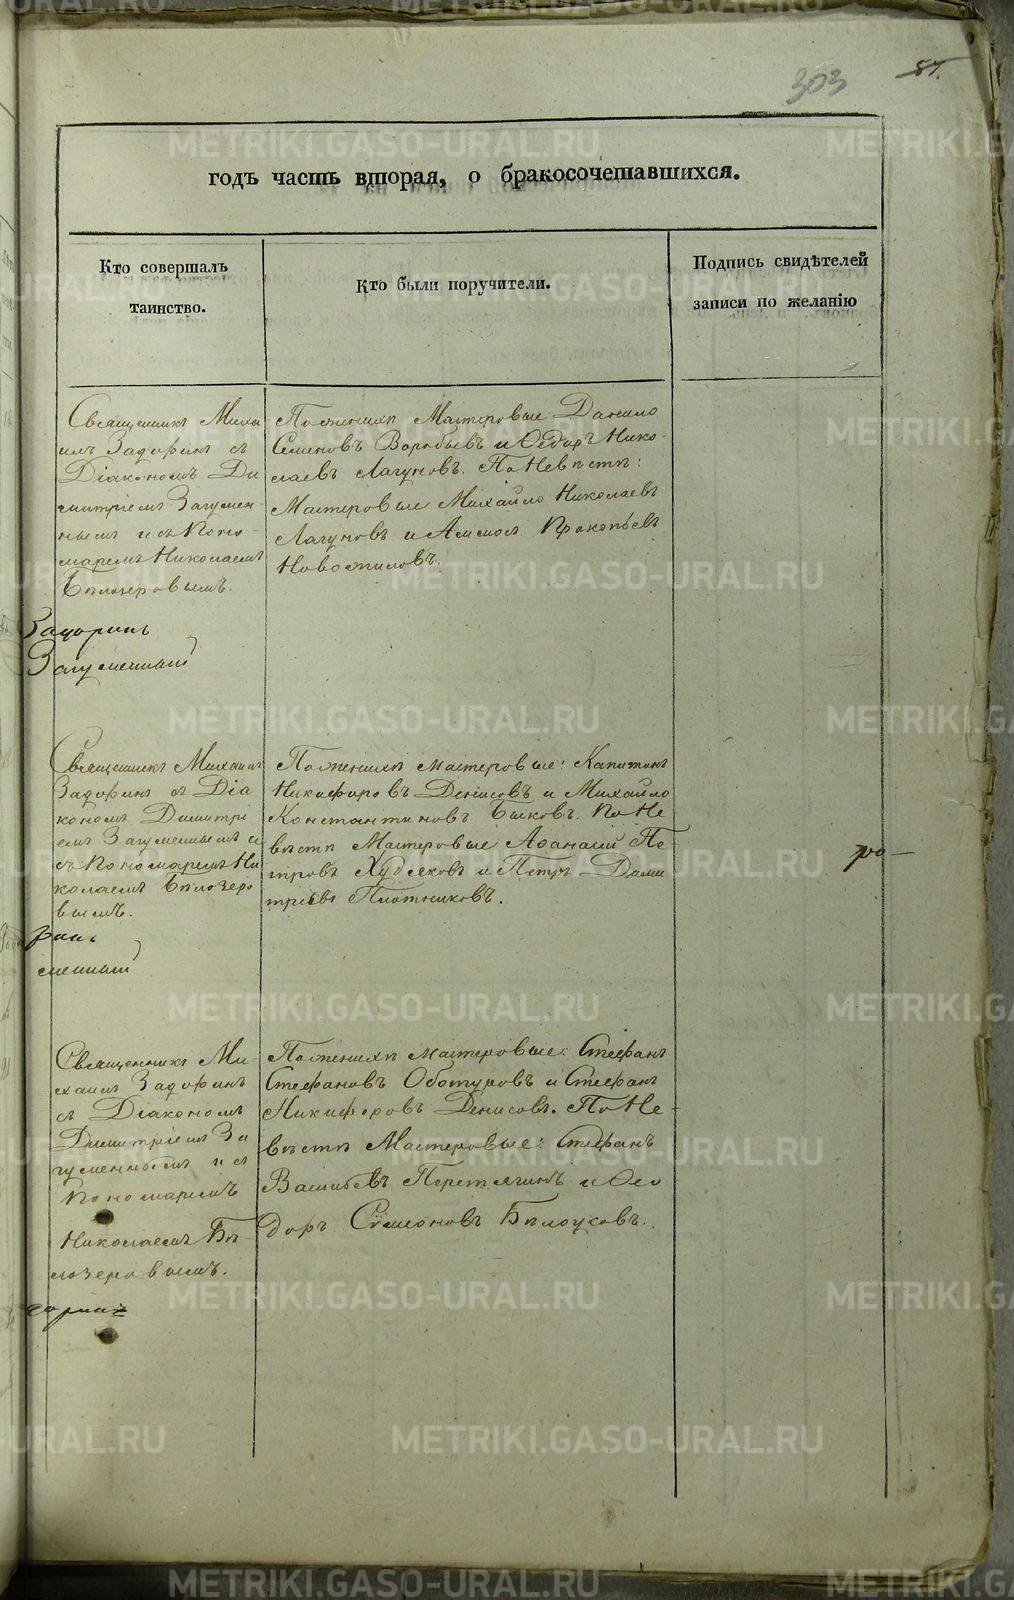 303
87.
годъ часть вторая, о бракосочетавшихся.
Кто совершалъ
таинство.
Кто были поручители.
Подпись свидѣтелей
записи по желанію
Священникъ Миха
илъ Задоринъ съ
Діакономъ Ди
митріемъ Загумен-
нымъ и съ Поно-
маремъ Николаемъ
Бѣлозеровымъ.
Задоринъ
Загуменный
По женихѣ Мастеровые Данило
Семеновъ Воробьевъ и Ѳедоръ Нико-
лаевъ Лагуновъ. По Невѣстѣ:
Мастеровые Михайло Николаевъ
Лагуновъ и Аммосъ Прокопьевъ
Новожиловъ.
Священникъ Михаилъ
Задоринъ съ Діа
кономъ Димитрі
емъ Загуменнымъ и
съ Пономаремъ Ни
колаемъ Бѣлозеро
вымъ.
ринъ
сменный
По женихѣ мастеровые: Капитонъ
Никифоровъ Денисовъ и Михайло
Константиновъ Быковъ. По Не
вѣстѣ Мастеровые Афанасій Пе
тровъ Худяковъ и Петръ Дими
тріевъ Плотниковъ.
Священникъ Ми-
хаилъ Задоринъ
съ Діакономъ
Димитріемъ За
гуменнымъ и съ
Пономаремъ
Николаемъ Бѣ-
лозеровымъ.
доринъ
По женихѣ мастеровые: Стефанъ
Стефановъ Оботуровъ и Стефанъ
Никифоровъ Денисовъ. По Не-
вѣстѣ Мастеровые: Стефанъ
Васильевъ Перетягинъ и Ѳео
доръ Симоновъ Бѣлоусовъ.
METRIKI.GASO-URAL.RU